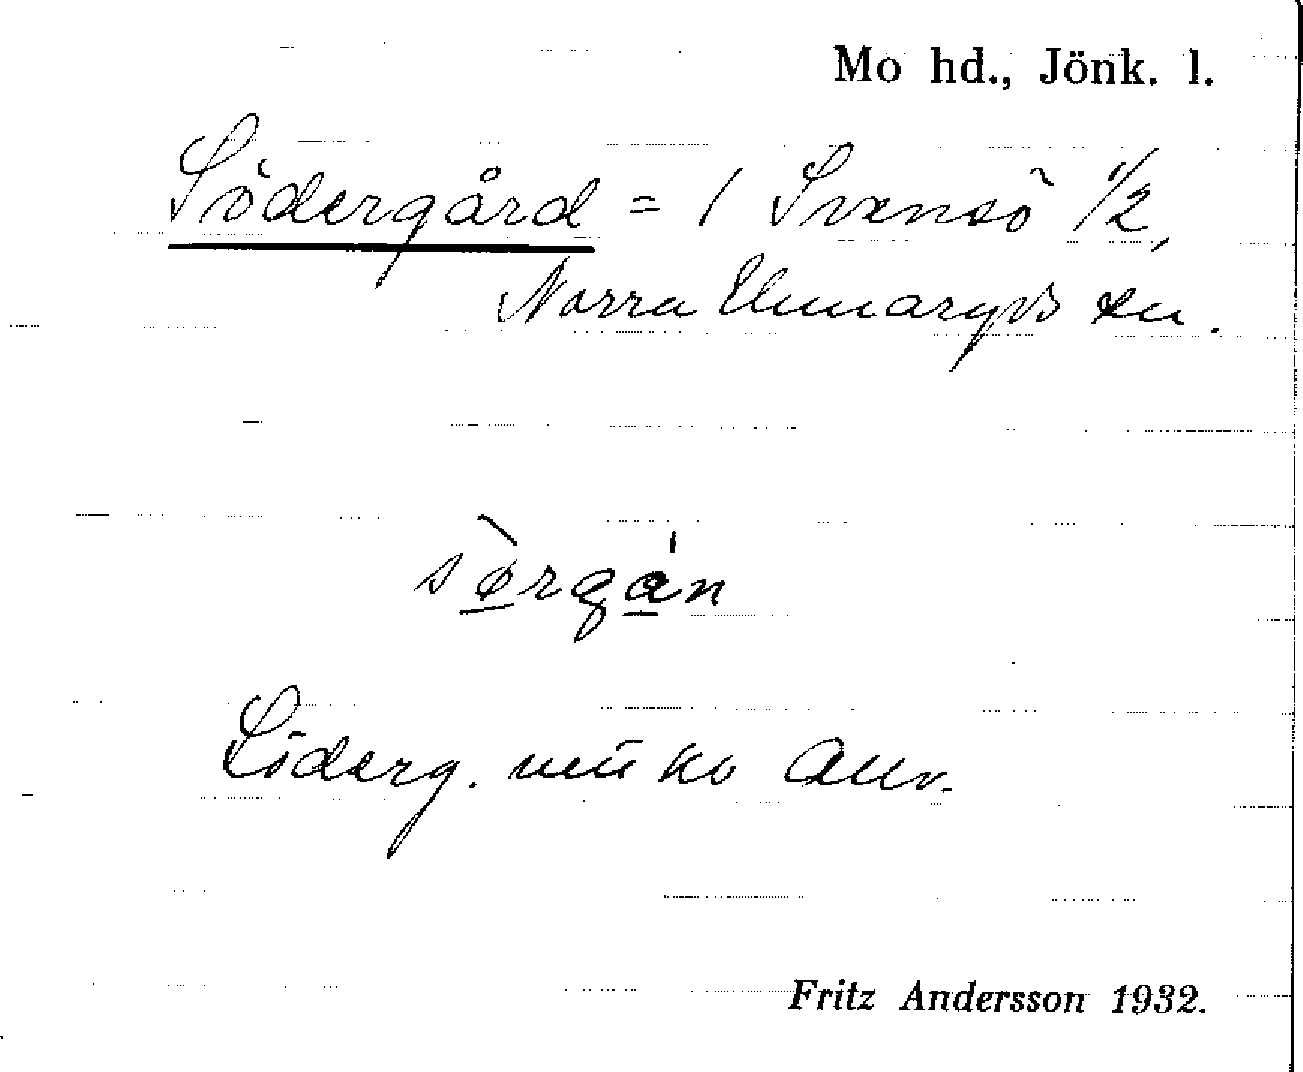 Mo hd., Jönk. l.
Södergård = 1 Svensö 1/2,
Norra Unnaryds sn.
sø̀rgán
Söderg. nu ko
Fritz Andersson 1932.